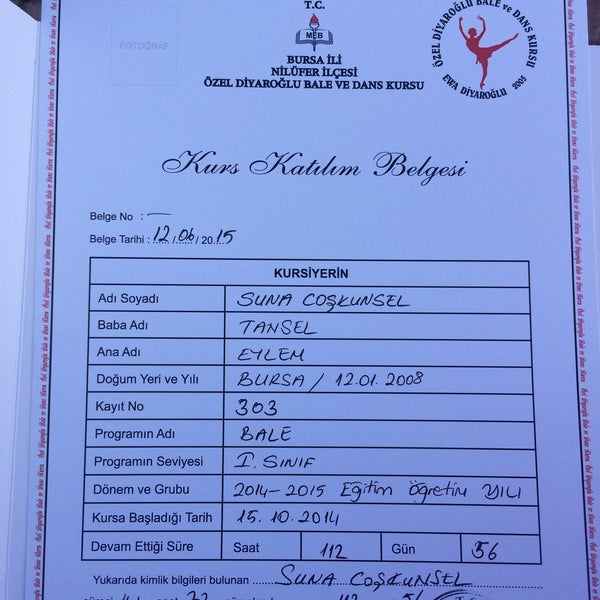 T.C.
MEB
FOTOĞRAF
BURSA İLİ
NİLÜFER İLÇESİ
ÖZEL DİYAROĞLU BALE VE DANS KURSU
ÖZEL DİYAROĞLU BALE ve DANS KURSU
EWA DİYAROĞLU 2005
Kurs Katılım Belgesi
Belge No : —
Belge Tarihi : 12/06/2015
KURSİYERİN
Adı Soyadı SUNA COŞKUNSEL
Baba Adı TANSEL
Ana Adı EYLEM
Doğum Yeri ve Yılı BURSA / 12.01.2008
Kayıt No 303
Programın Adı BALE
Programın Seviyesi I. SINIF
Dönem ve Grubu 2014-2015 Eğitim Öğretim YILI
Kursa Başladığı Tarih 15.10.2014
Devam Ettiği Süre Saat 112 Gün 56
Yukarıda kimlik bilgileri bulunan SUNA COŞKUNSEL